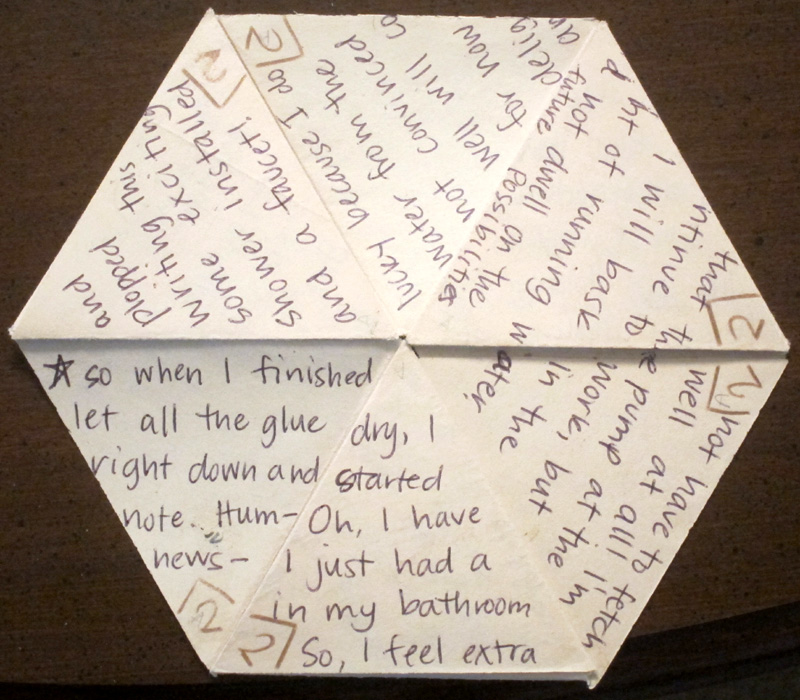 so when I finished
let all the glue
right down and
note. Hum-
news-
dry, I
started
Oh, I have
I just had a
in my bathroom
So, I feel extra
not have to fetch
well at all! I'm
the pump at the
work, but
in the
water,
that
ntinue to
I will bask
ht of running
d not dwell on the
future possibilities
an
delig
for now
well will co
not convinced
water from the
lucky because I do
and
plopped
writing this
some exciting
shower installed
and a faucet!
2
2
2
2
2
2